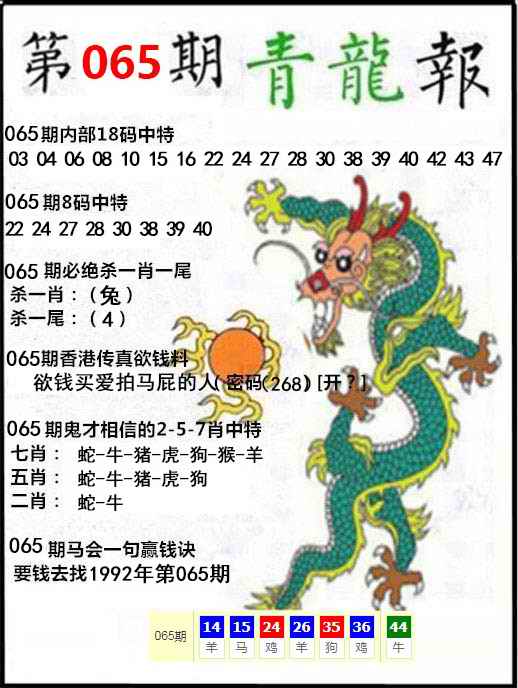 第065期青龍報
065期内部18码中特
03 04 06 08 10 15 16 22 24 27 28 30 38 39 40 42 43 47
065期8码中特
22 24 27 28 30 38 39 40
065 期必绝杀一肖一尾
杀一肖：（兔）
杀一尾：（4）
065期香港传真欲钱料
欲钱买爱拍马屁的人( 密码(268) [开？]
065期鬼才相信的2-5-7肖中特
七肖： 蛇-牛-猪-虎-狗-猴-羊
五肖： 蛇-牛-猪-虎-狗
二肖： 蛇-牛
065 期马会一句赢钱诀
要钱去找1992年第065期
065期 14 15 24 26 35 36 44
羊 马 鸡 羊 狗 鸡 牛